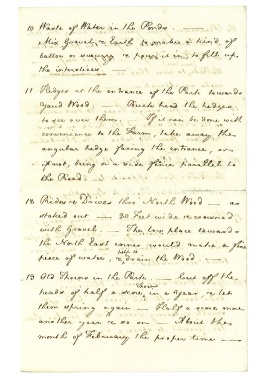 10 Waste of Water in the Ponds. —
Mix Gravel & Earth to make a kind of
batter or & pour it in, to fill up
the interstices —
11 Hedges at the entrance of the Park towards
Yard Wood. — Back head the hedges
to see over them. If it can be done with
convenience to the Farm, take away the
angular hedge facing the entrance, or
if not, bring on a wide fence parallel to
the Road
12 Rides & Drives thro North Wood — as
staked out — 30 Feet wide & crowned
with Gravel — The low place towards
the North East corner would make a fine
peace of water, & drain the Wood —
13 Old Thorns in the Park — Cut off the
heads of half a score, in a Year & let
them spring again — Half a score more
another year & so on — About the
month of February the proper time —